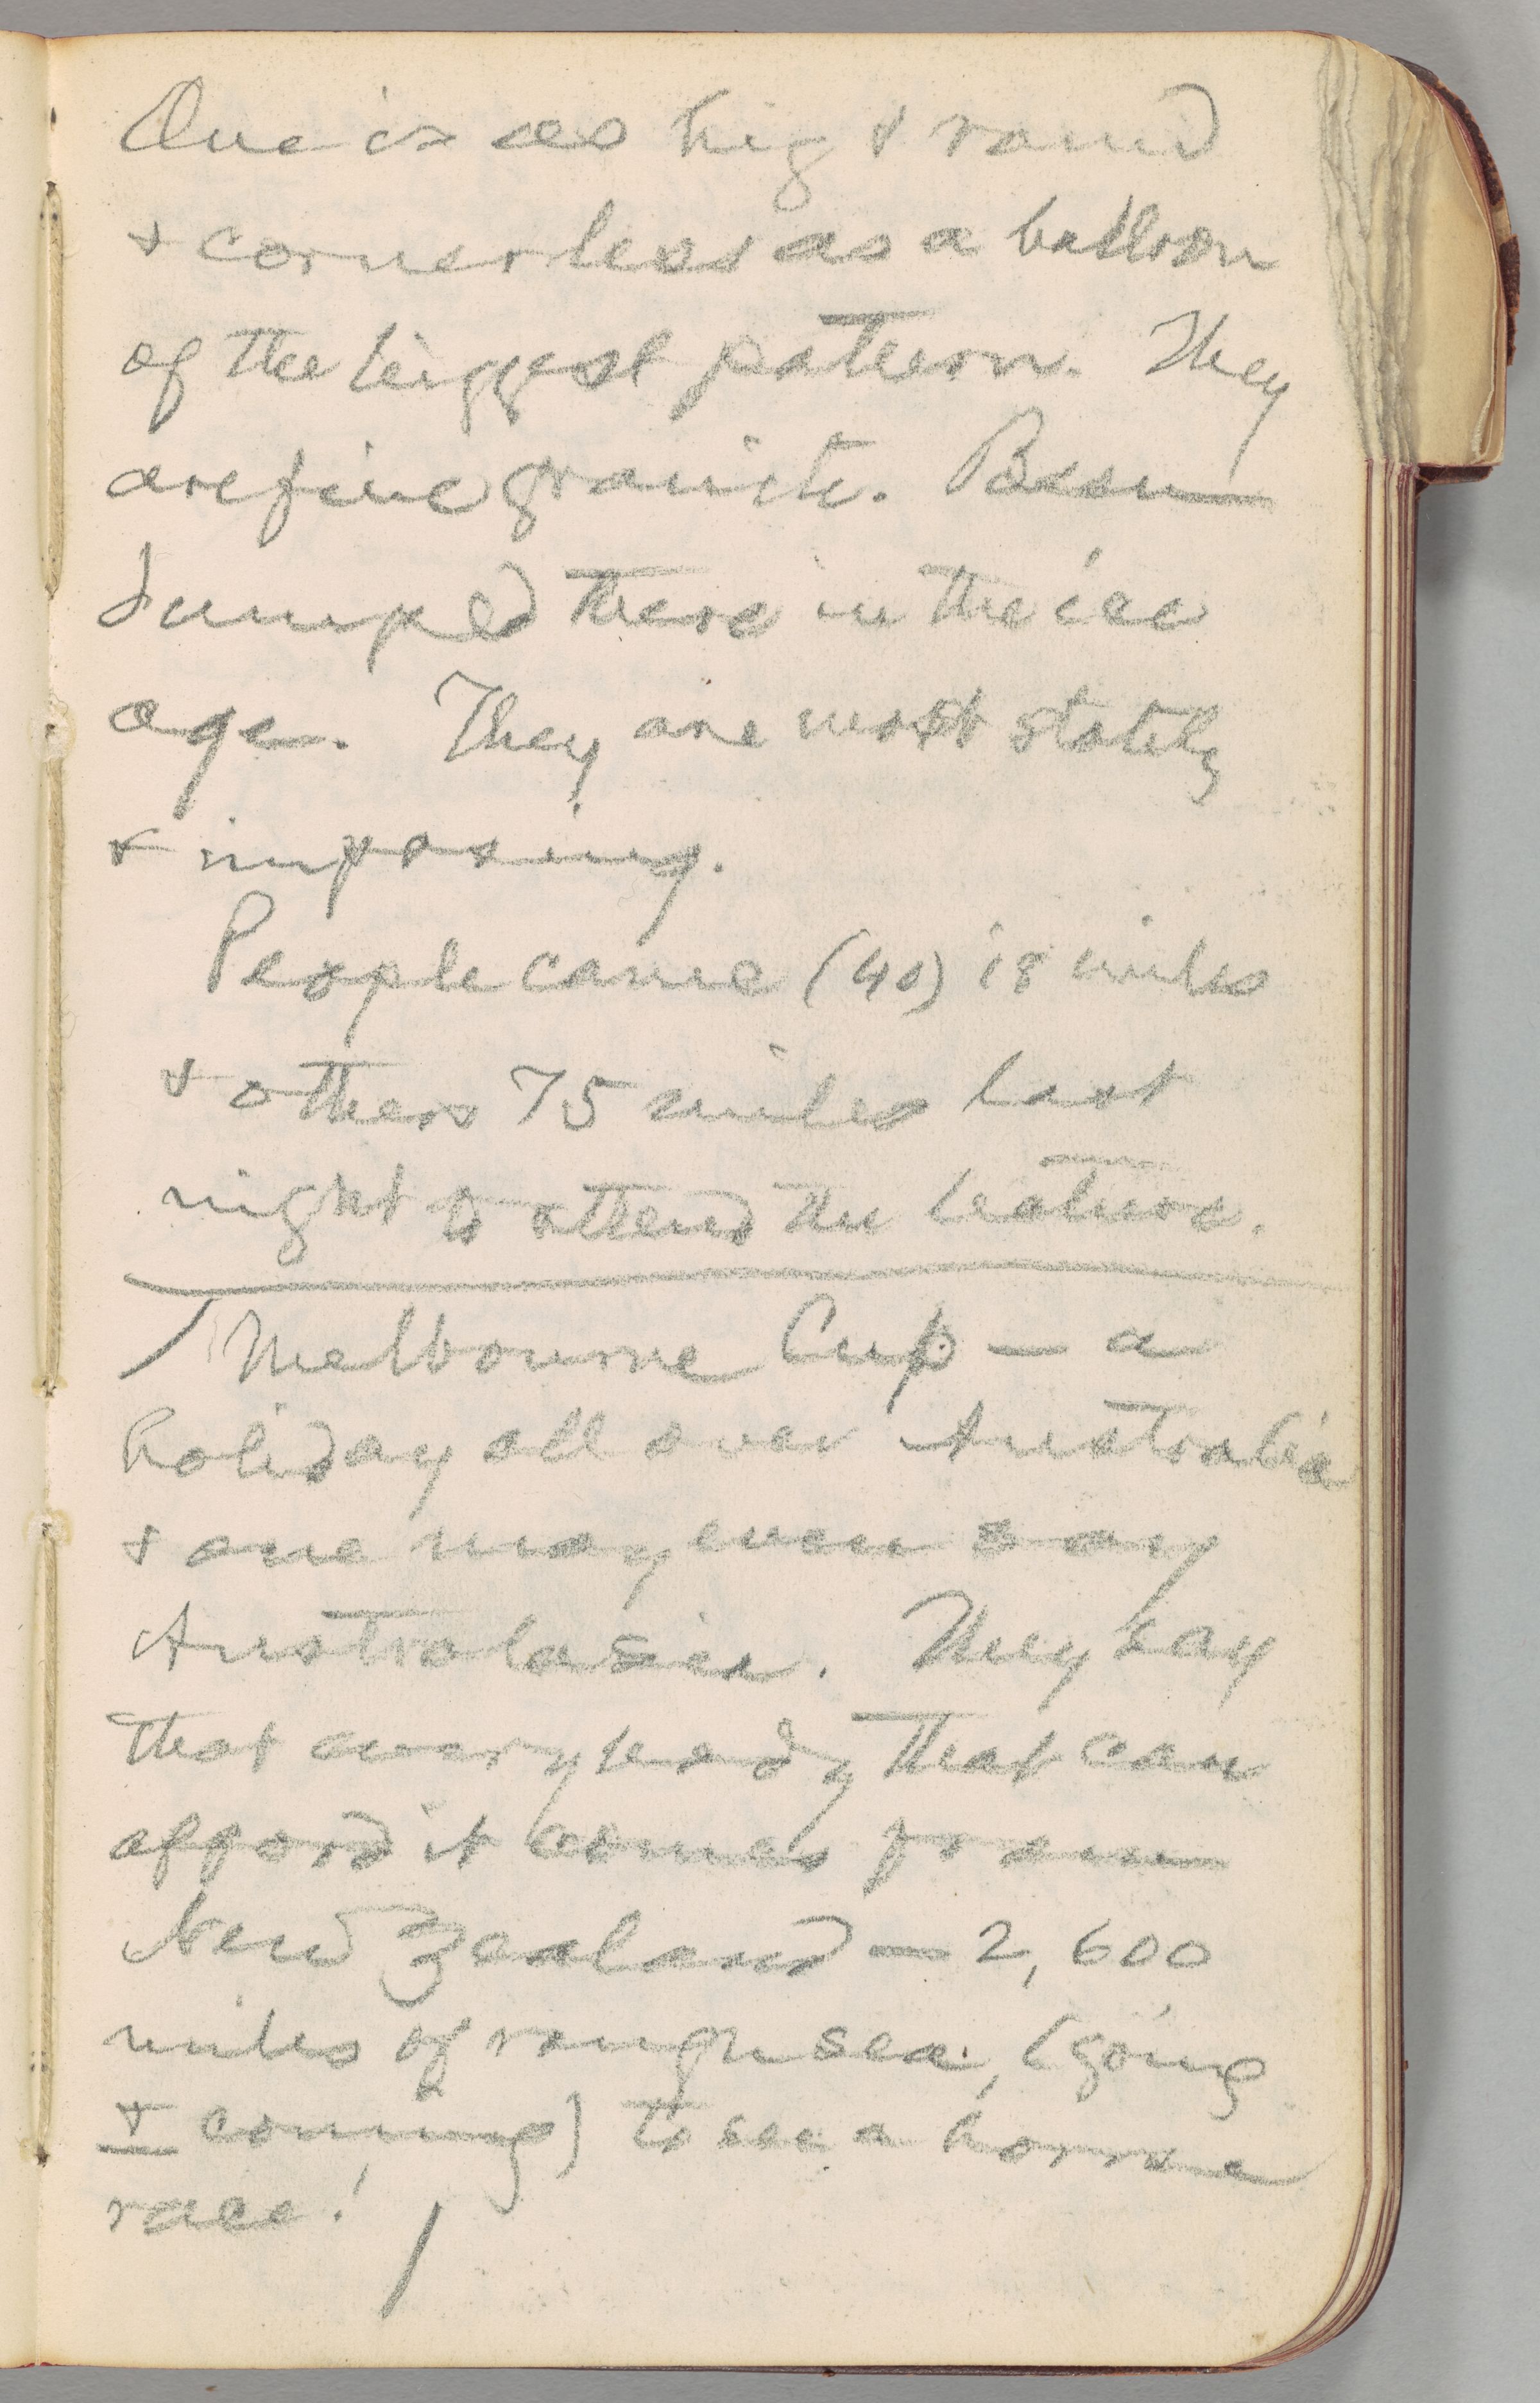 One is as big & round
& cornerless as a balloon
of the biggest pattern. They
are fine granite. Been
dumped there in the ice
age. They are most stately
& imposing.
People came (40) 18 miles
& others 75 miles last
night to attend the lecture.
Melbourne Cup — a
holiday all over Australia
& one may even say
Australasia. They say
that everybody that can
afford it comes from
New Zealand — 2,600
miles of rough sea, (going
& coming) to see a horse
race!